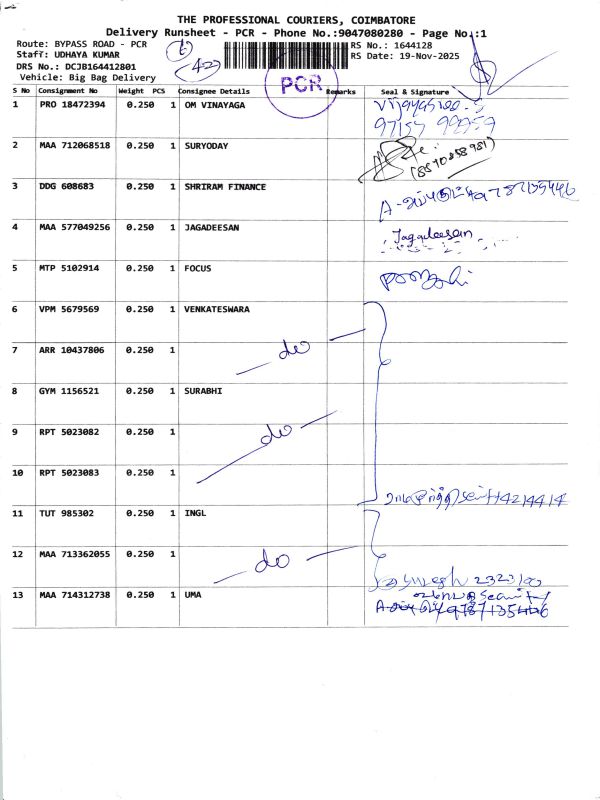 THE PROFESSIONAL COURIERS, COIMBATORE
Delivery Runsheet - PCR - Phone No.:9047080280 - Page No.:1
Route: BYPASS ROAD - PCR
Staff: UDHAYA KUMAR
DRS No.: DCJB164412801
Vehicle: Big Bag Delivery
RS No.: 1644128
RS Date: 19-Nov-2025
PCR
S No Consignment No Weight PCS Consignee Details Remarks Seal & Signature
1 PRO 18472394 0.250 1 OM VINAYAGA
2 MAA 712068518 0.250 1 SURYODAY
3 DDG 608683 0.250 1 SHRIRAM FINANCE
4 MAA 577049256 0.250 1 JAGADEESAN Jagadeesan
5 MTP 5102914 0.250 1 FOCUS
6 VPM 5679569 0.250 1 VENKATESWARA
7 ARR 10437806 0.250 1 do
8 GYM 1156521 0.250 1 SURABHI
9 RPT 5023082 0.250 1 do
10 RPT 5023083 0.250 1
11 TUT 985302 0.250 1 INGL
12 MAA 713362055 0.250 1 do
13 MAA 714312738 0.250 1 UMA